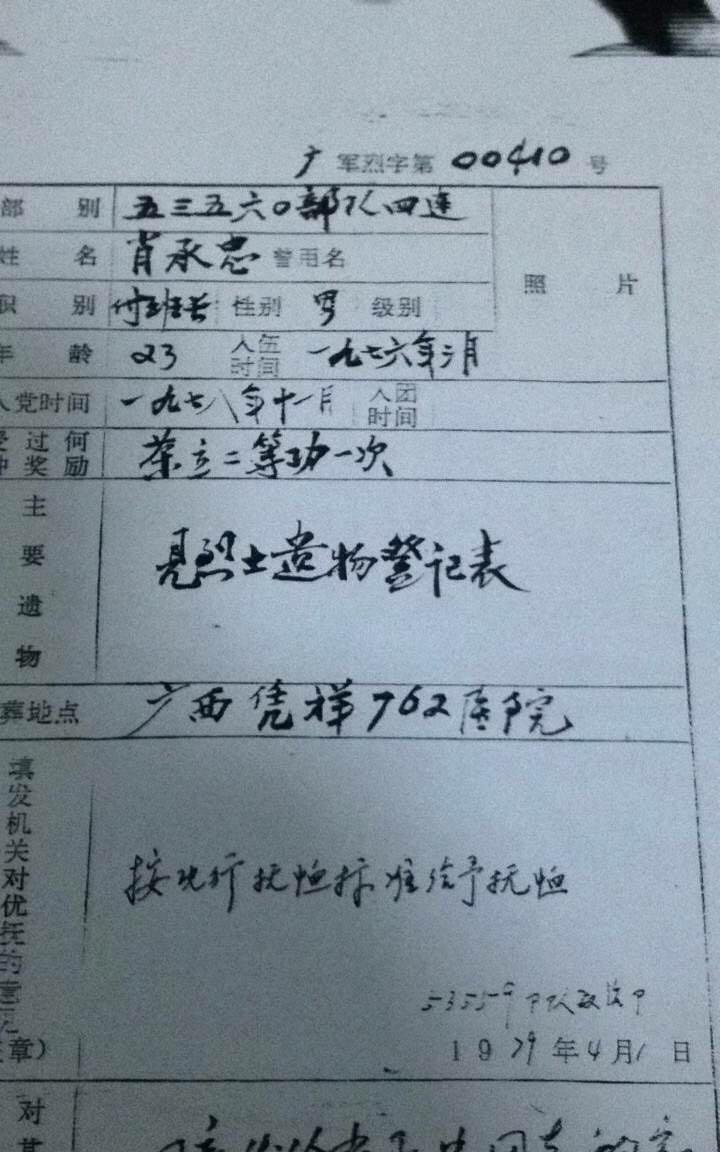 广军烈字第 00410 号
部别 五三五六〇部队四连
姓名 肖承忠 曾用名
照片
职别 付班长 性别 男 级别
年龄 23 入伍时间 一九七六年三月
入党时间 一九七八年十一月 入团时间
受过何种奖励 荣立二等功一次
主要遗物 见烈士遗物登记表
葬地点 广西凭祥762医院
填发机关对优抚的意见 按现行抚恤标准给予抚恤
53559部队政治部
章）
1979年4月1日
对
其